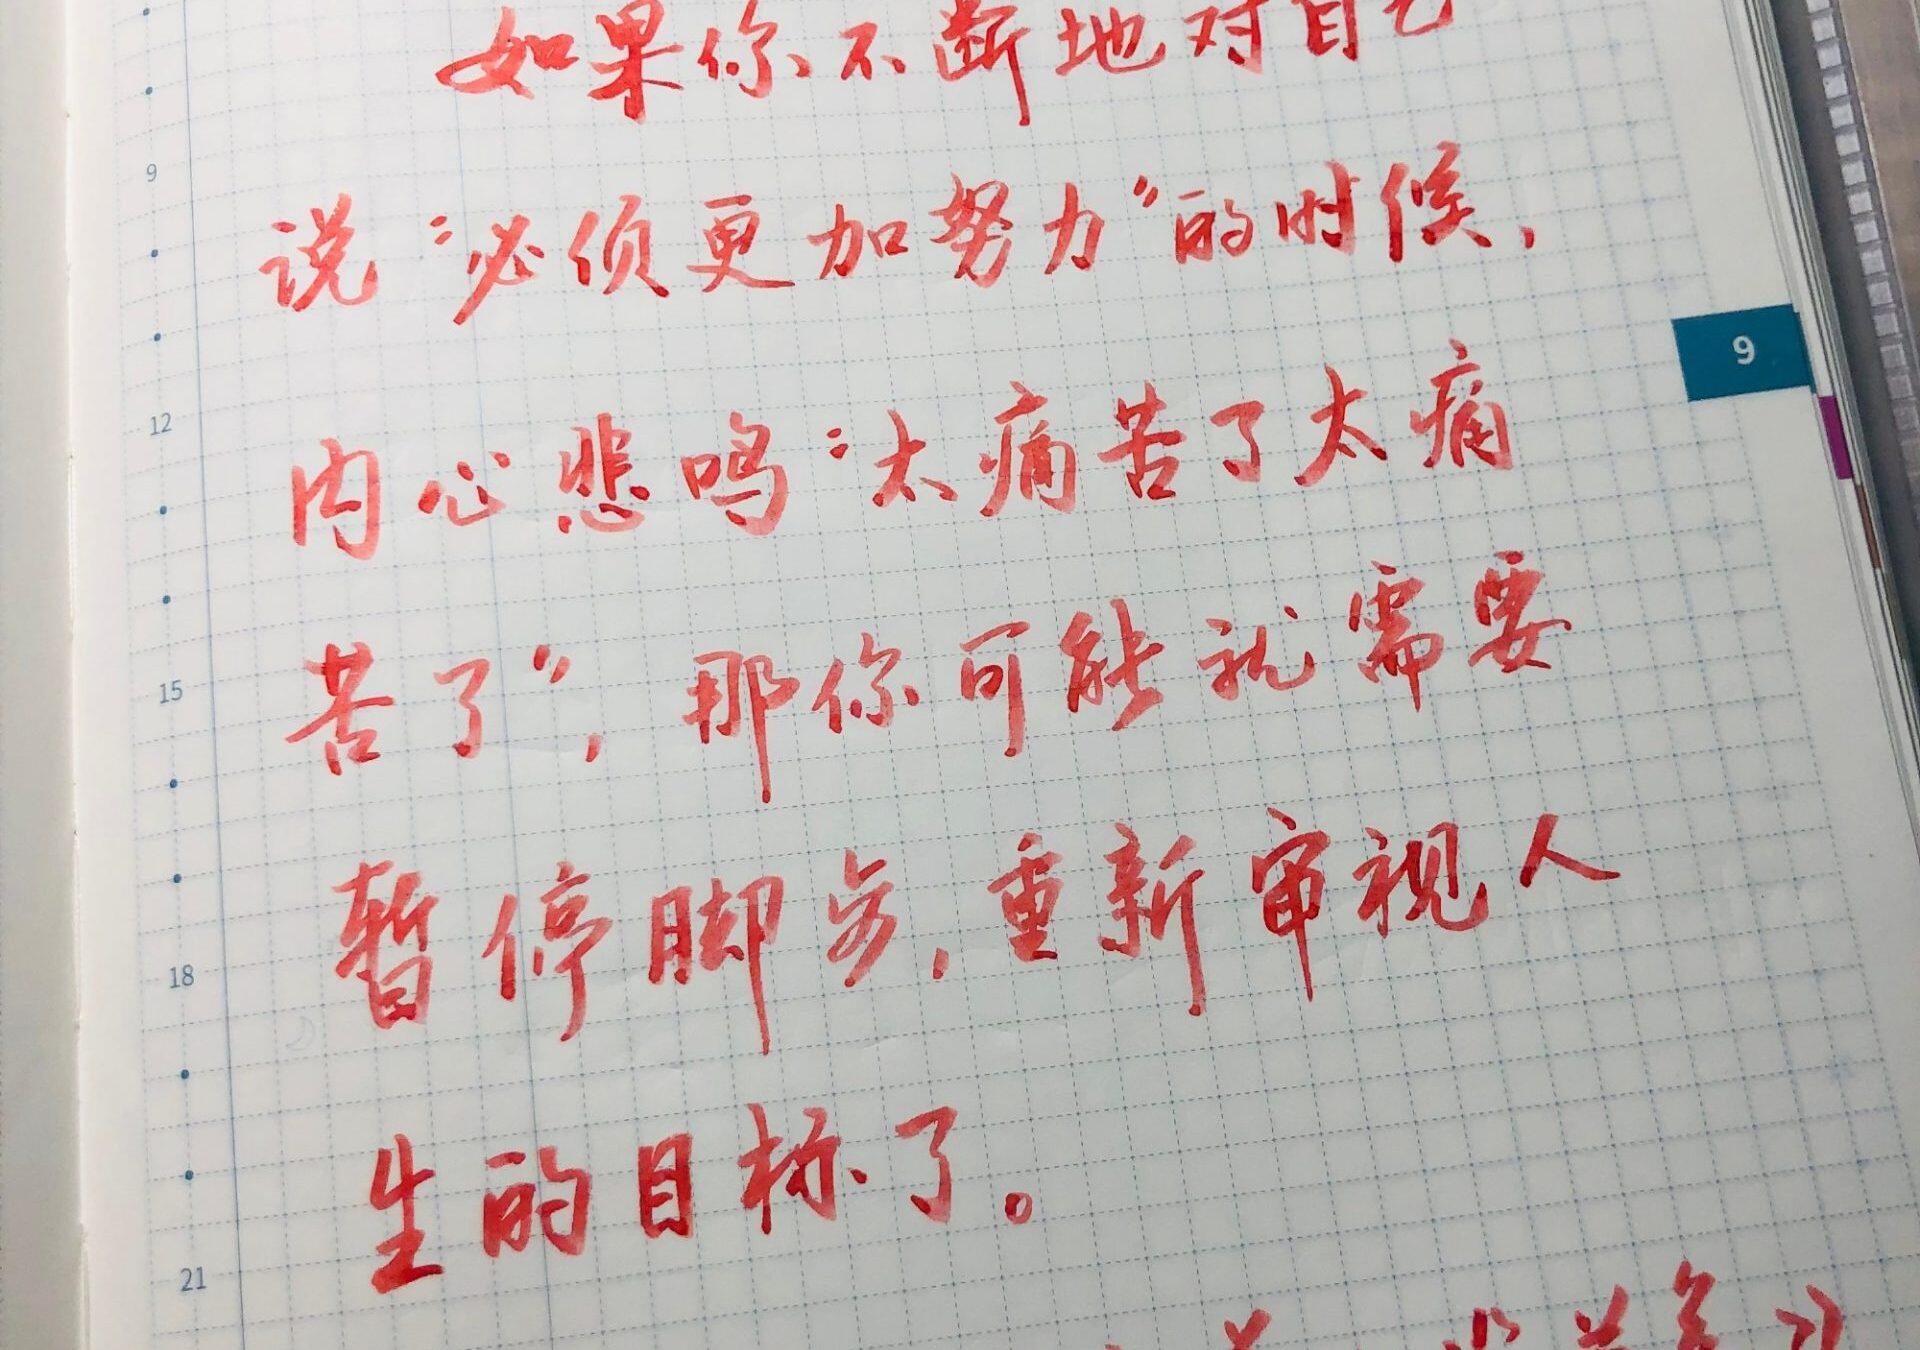 如果你不断地对自己
9
说“必须更加努力”的时候，
9
12
内心悲鸣“太痛苦了太痛
苦了”，那你可能就需要
15
暂停脚步，重新审视人
18
生的目标了。
21